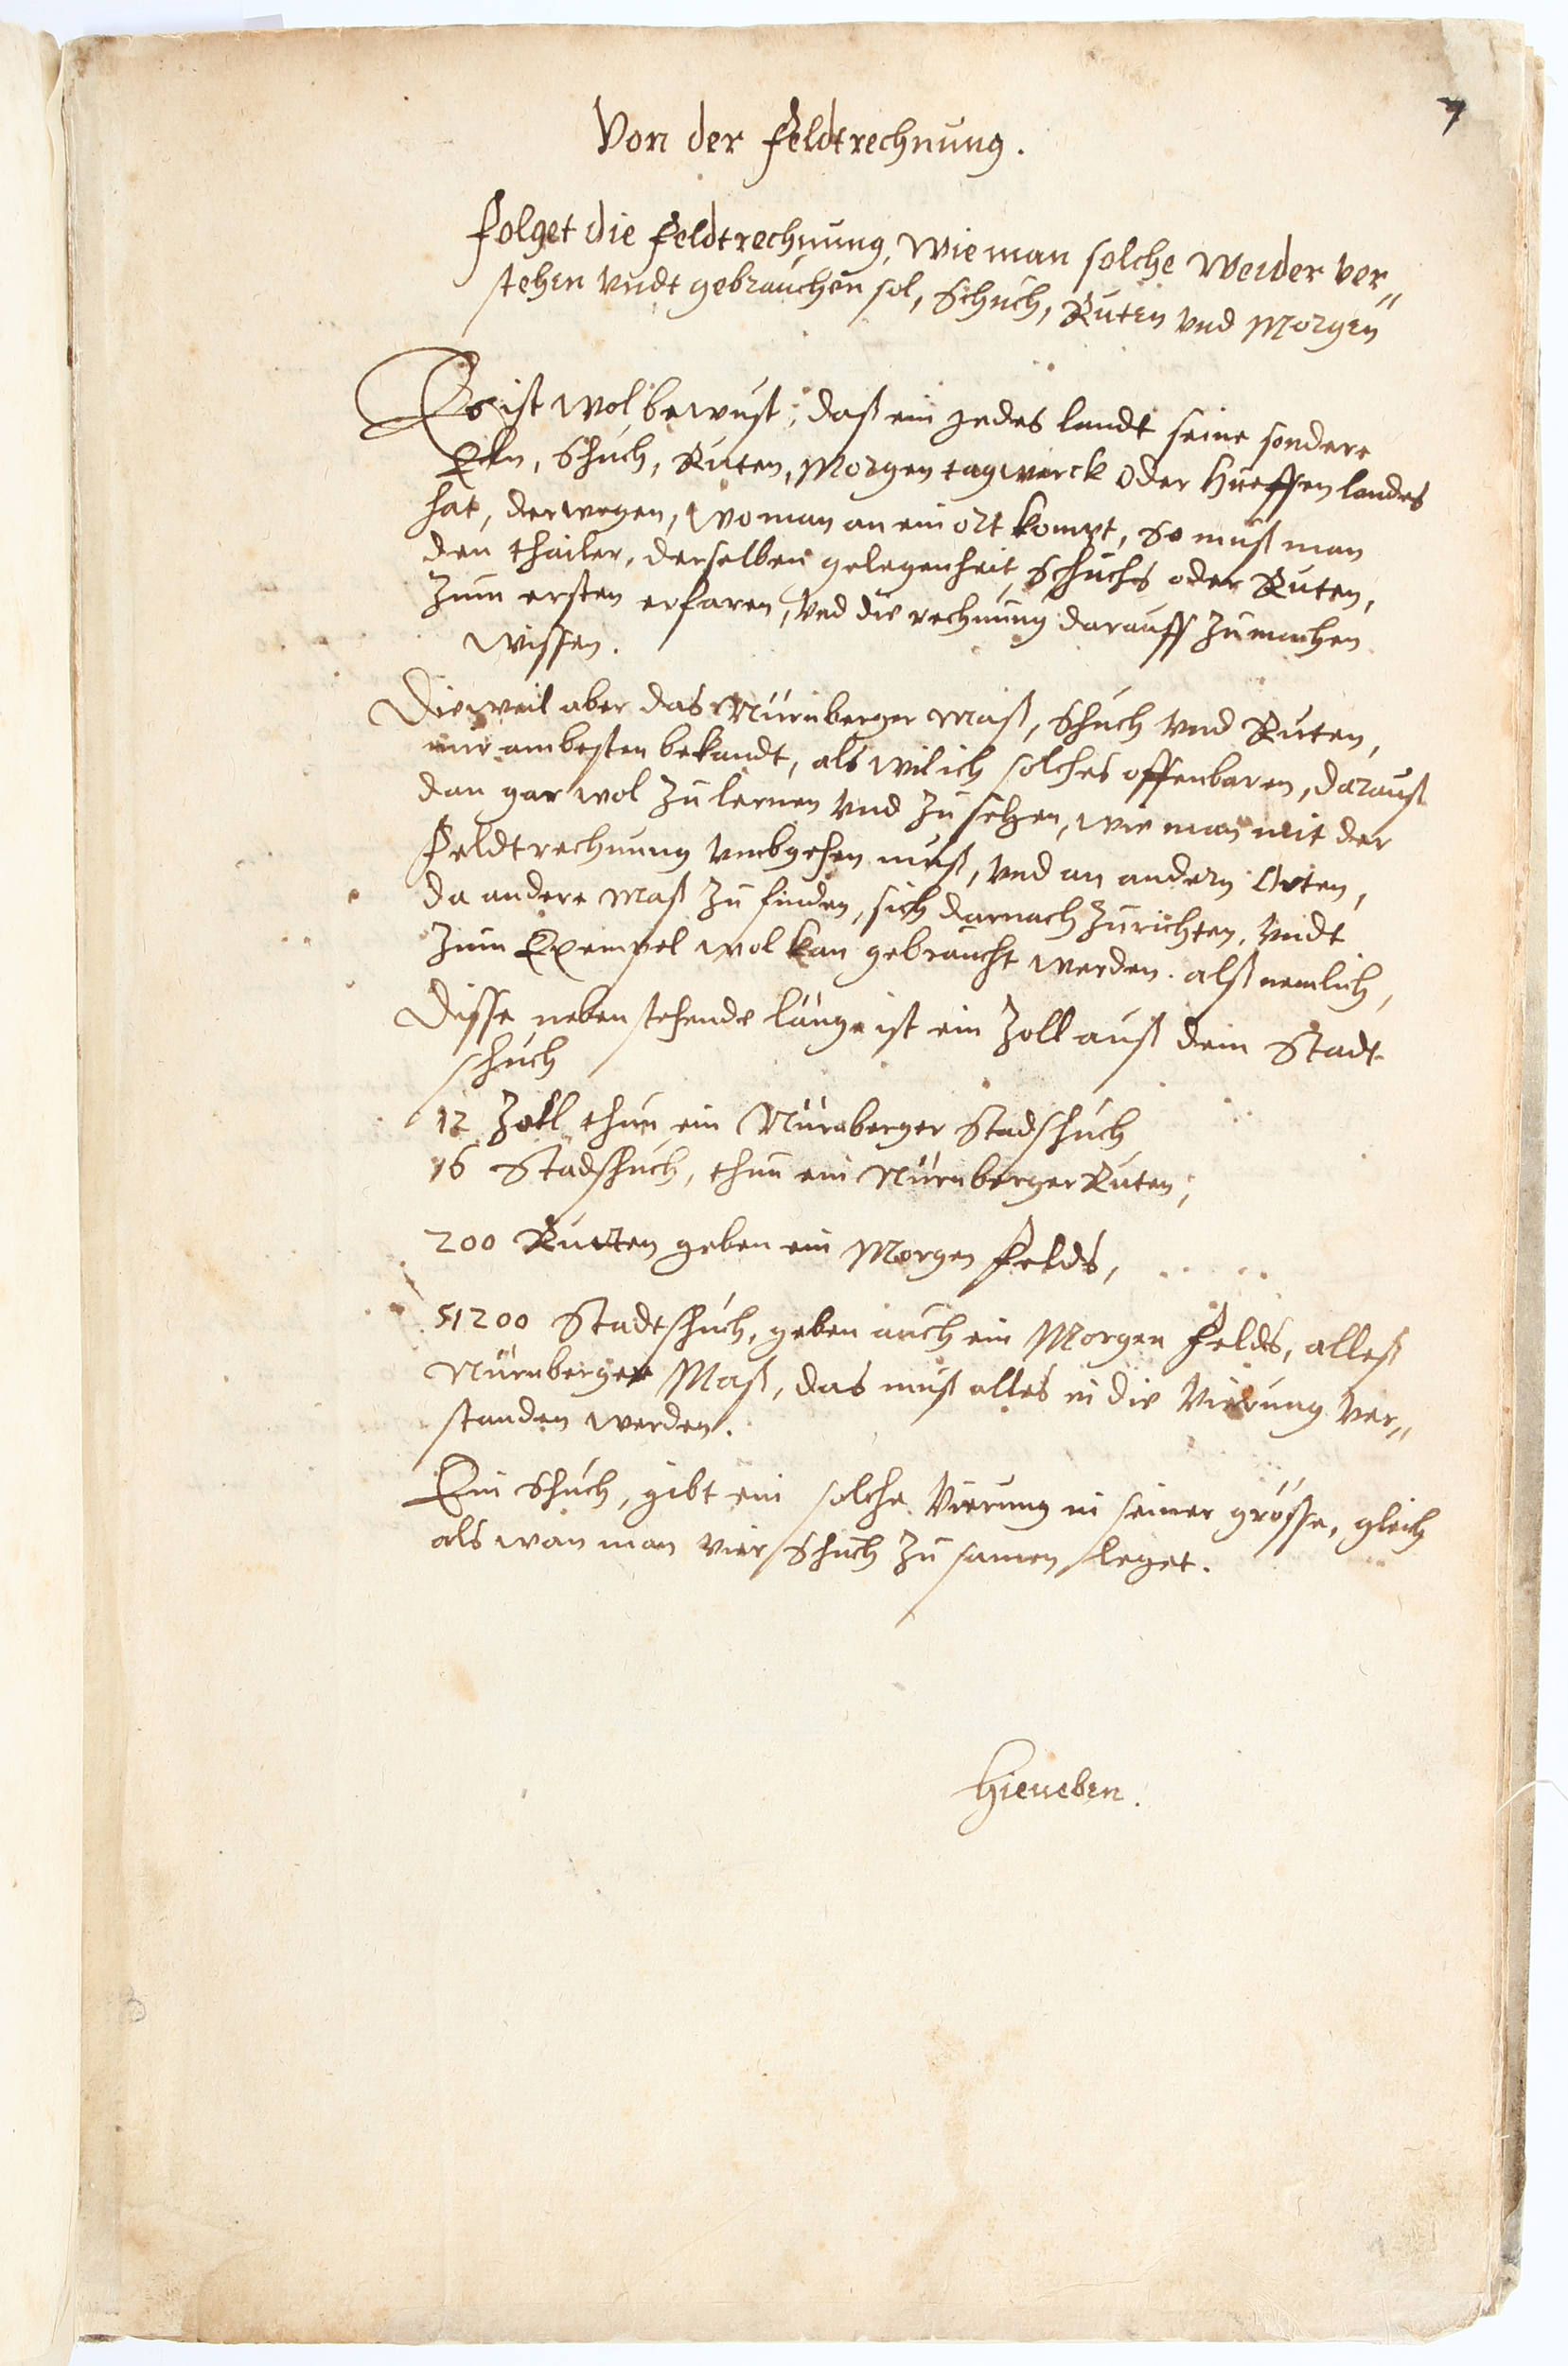 7
Von der Feldtrechnung.
Folget die Feldtrechnung, Wie man solche Weider ver„
stehen vndt gebrauchen sol, Schuch, Ruten vnd Morgen
Es ist wol bewust, daß ein jedes landt seine sondere
Eln, Schuch, Ruten, Morgen tagwerck oder Hueffen landes
hat, derwegen, wo man an ein ort kompt, so muß man
den theiler, derselben gelegenheit, Schuchs oder Ruten,
zum ersten erfaren, vnd die rechnung darauff zu machen
wissen.
Dieweil aber das Nürnberger Maß, Schuch vnd Ruten,
mir am besten bekandt, als wil ich solches offenbaren, darauß
dan gar wol zu lernen vnd zu sehen, wie man mit der
Feldtrechnung vmbgehen muß, vnd an andern Orten,
da andere Maß zu finden, sich darnach zu richten, vndt
zum Exempel wol kan gebraucht werden. alß nemlich,
Disse neben stehende länge ist ein Zoll auß dem Stadt
schuch
12 Zoll thun ein Nürnberger Stadschuch
16 Stadschuch, thun ein Nürnberger Ruten,
200 Ruten geben ein Morgen Felds,
51200 Stadtschuch, geben auch ein Morgen Felds, alleß
Nürnberger Maß, das muß alles in die Vierung ver„
standen werden.
Ein Schuch, gibt ein solche Vierung in seiner grösse, gleich
als wan man vier Schuch zu samen leget.
Hieneben.